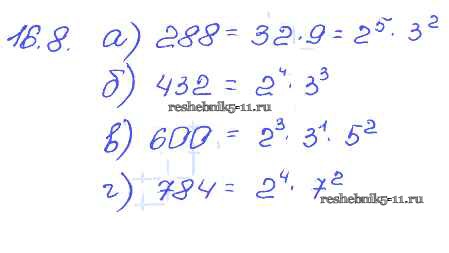 16.8. а) 288 = 32·9 = 2⁵·3²
б) 432 = 2⁴·3³
reshebnik5-11.ru
в) 600 = 2³·3¹·5²
г) 784 = 2⁴·7²
reshebnik5-11.ru